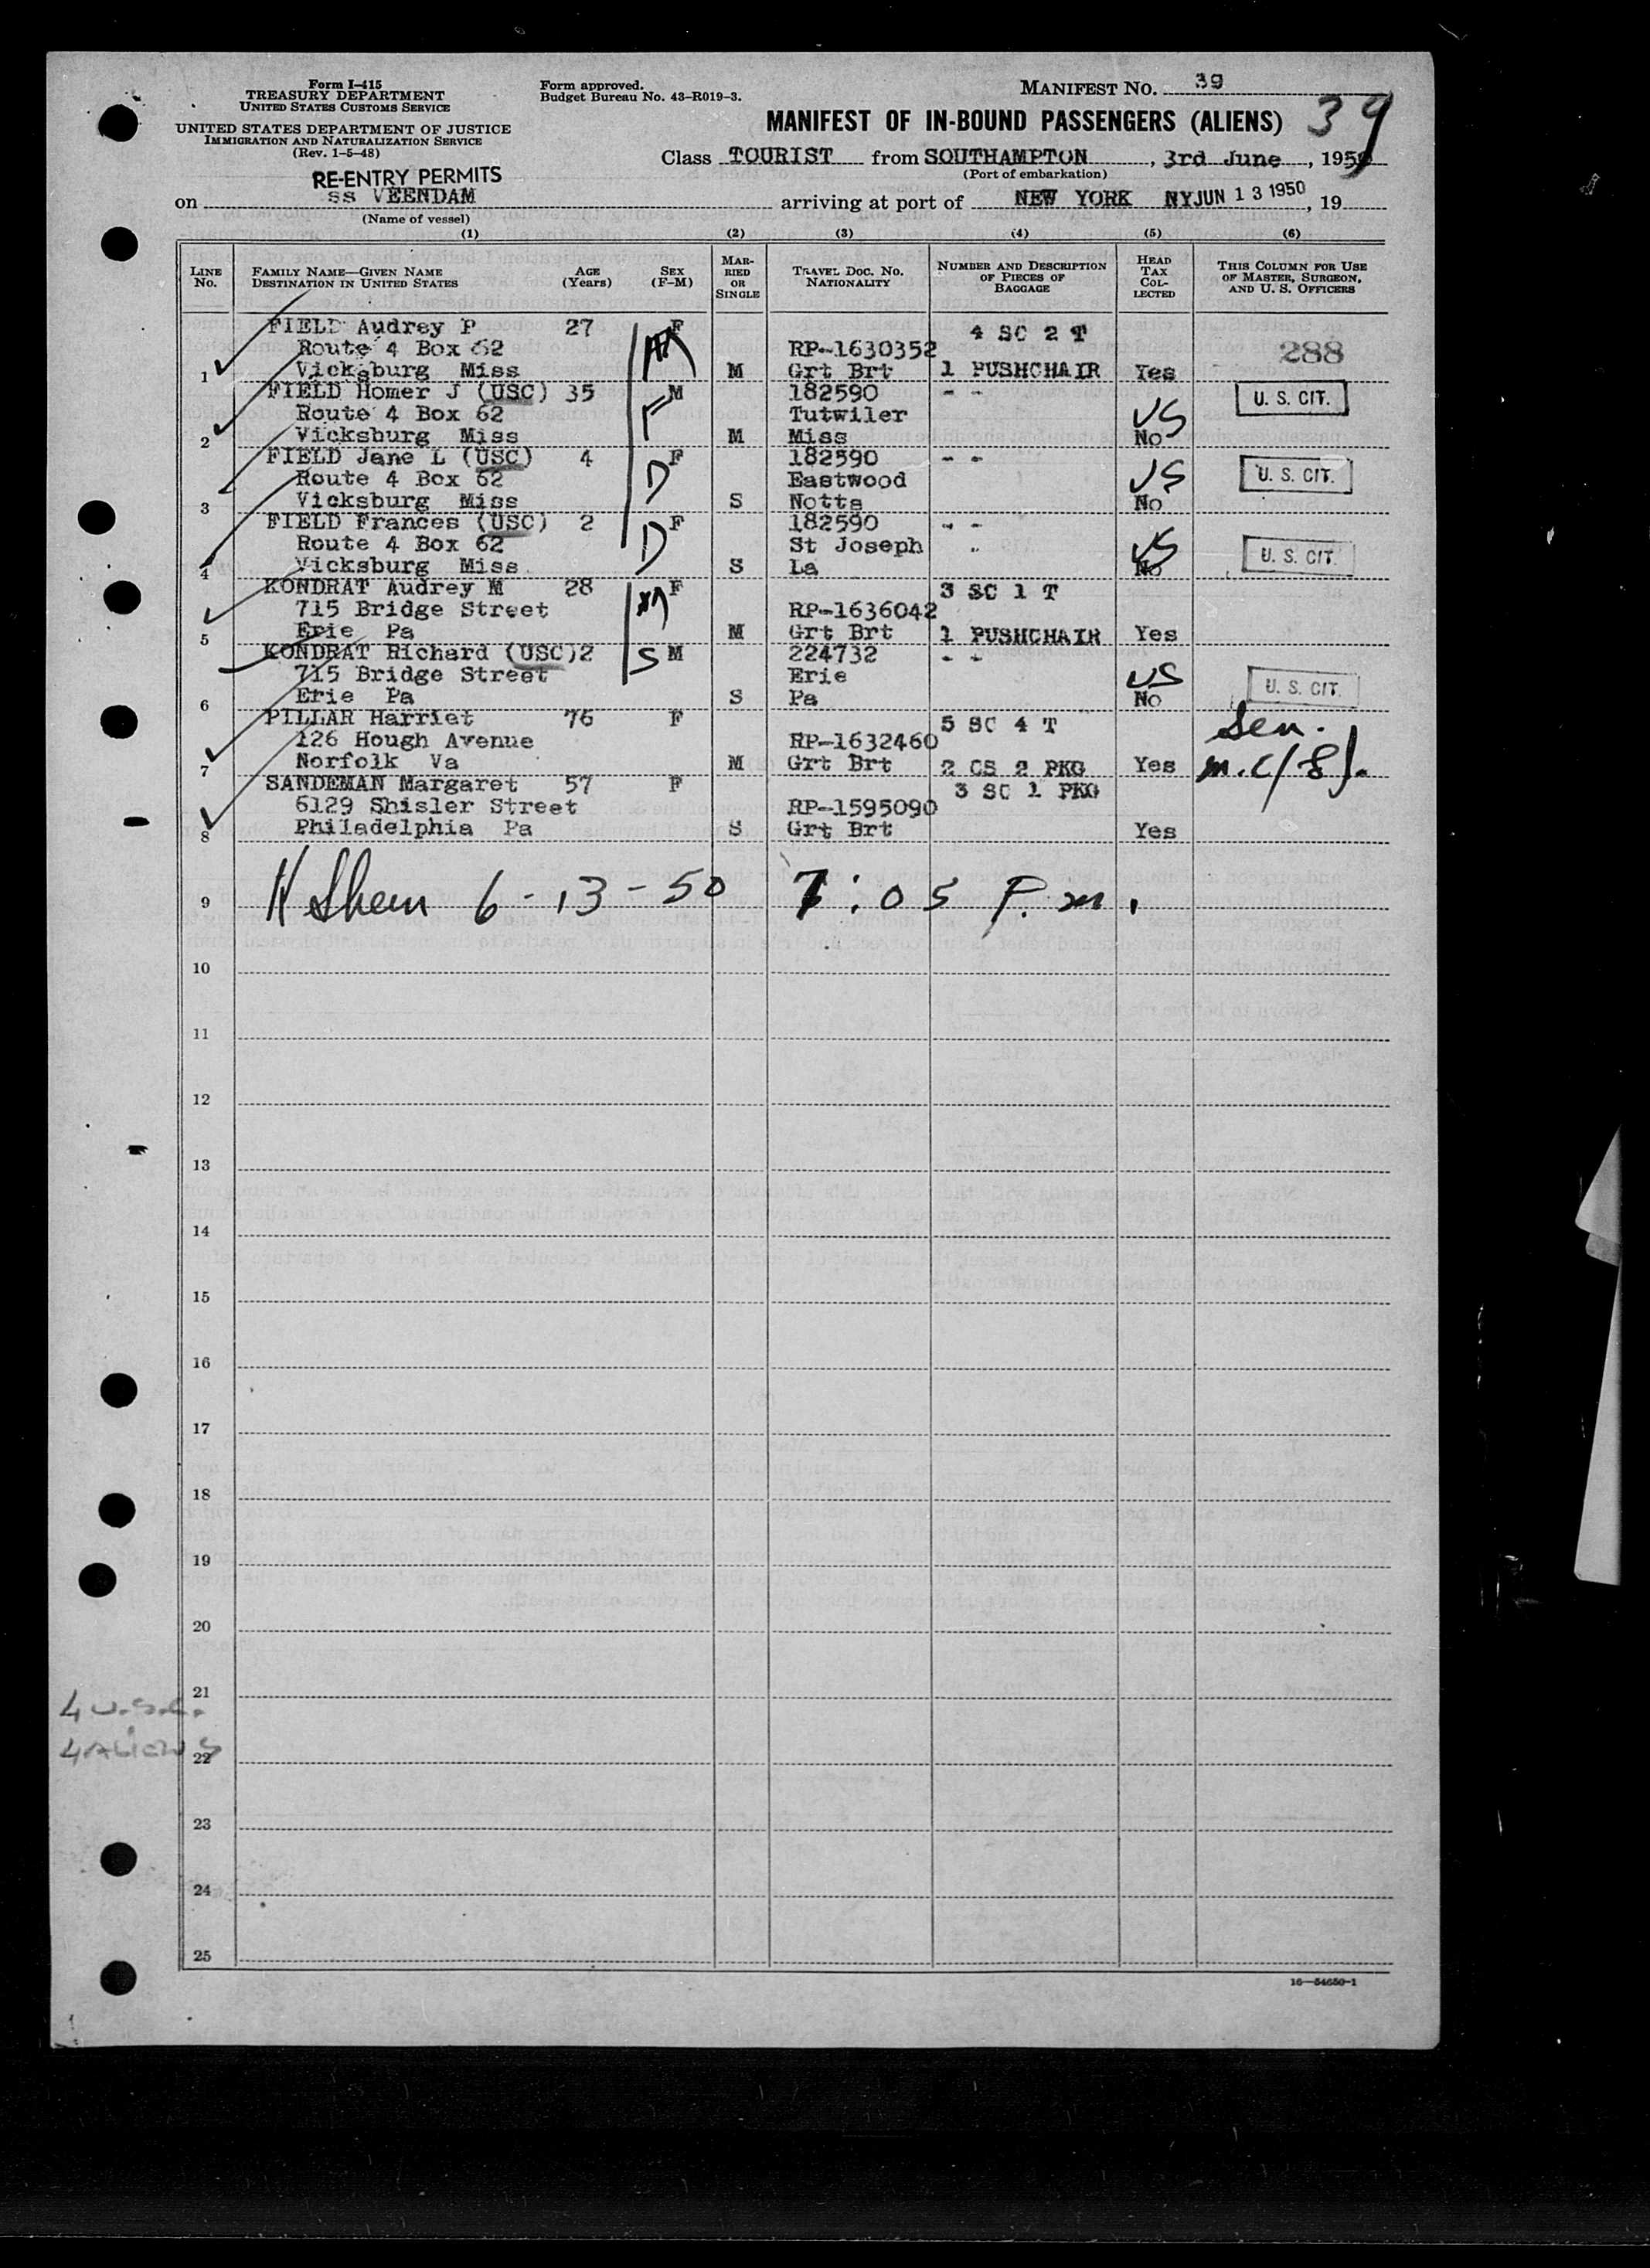 Form I-415
TREASURY DEPARTMENT
UNITED STATES CUSTOMS SERVICE
UNITED STATES DEPARTMENT OF JUSTICE
IMMIGRATION AND NATURALIZATION SERVICE
(Rev. 1-5-48)
Form approved.
Budget Bureau No. 43-R019-3.
MANIFEST NO. 39
MANIFEST OF IN-BOUND PASSENGERS (ALIENS) 39
Class TOURIST from SOUTHAMPTON, 3rd June, 1950
(Port of embarkation)
RE-ENTRY PERMITS
on ss VEENDAM arriving at port of NEW YORK NY JUN 13 1950, 19
(Name of vessel)
(1) (2) (3) (4) (5) (6)
LINE NO. FAMILY NAME—GIVEN NAME DESTINATION IN UNITED STATES AGE (YEARS) SEX (F-M) MARRIED OR SINGLE TRAVEL DOC. NO. NATIONALITY NUMBER AND DESCRIPTION OF PIECES OF BAGGAGE HEAD TAX COLLECTED THIS COLUMN FOR USE OF MASTER, SURGEON, AND U. S. OFFICERS
FIELD Audrey P 27 F 4 SC 2 T
Route 4 Box 62 RP-1630352 288
1 Vicksburg Miss M Grt Brt 1 PUSHCHAIR Yes
FIELD Homer J (USC) 35 M 182590 - - U. S. CIT.
Route 4 Box 62 Tutwiler US
2 Vicksburg Miss M Miss No
FIELD Jane L (USC) 4 F 182590 - -
Route 4 Box 62 D Eastwood US U. S. CIT.
3 Vicksburg Miss S Notts No
FIELD Frances (USC) 2 F 182590 - -
Route 4 Box 62 D St Joseph US U. S. CIT.
4 Vicksburg Miss S La No
KONDRAT Audrey M 28 F 3 SC 1 T
715 Bridge Street RP-1636042
5 Erie Pa M Grt Brt 1 PUSHCHAIR Yes
KONDRAT Richard (USC) 2 S M 224732 - -
715 Bridge Street Erie US U. S. CIT.
6 Erie Pa S Pa No
PILLAR Harriet 76 F 5 SC 4 T Sen.
126 Hough Avenue RP-1632460
7 Norfolk Va M Grt Brt 2 CS 2 PKG Yes
SANDEMAN Margaret 57 F 3 SC 1 PKG
6129 Shisler Street RP-1595090
8 Philadelphia Pa S Grt Brt Yes
9 6-13-50 7:05 P.m.
10
11
12
13
14
15
16
17
18
19
20
21
4 U.S.C.
22
4 ALIENS
23
24
25
16—54650-1